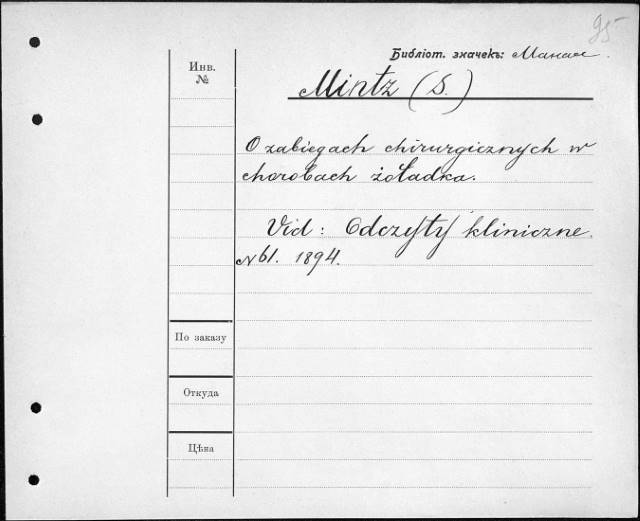 95
Библіот. значекъ:
Инв. №
Mintz (S.)
O zabiegach chirurgicznych w
chorobach żoładka.
Vid: Odczyty kliniczne.
№ 61. 1894.
По заказу
Откуда
Цѣна